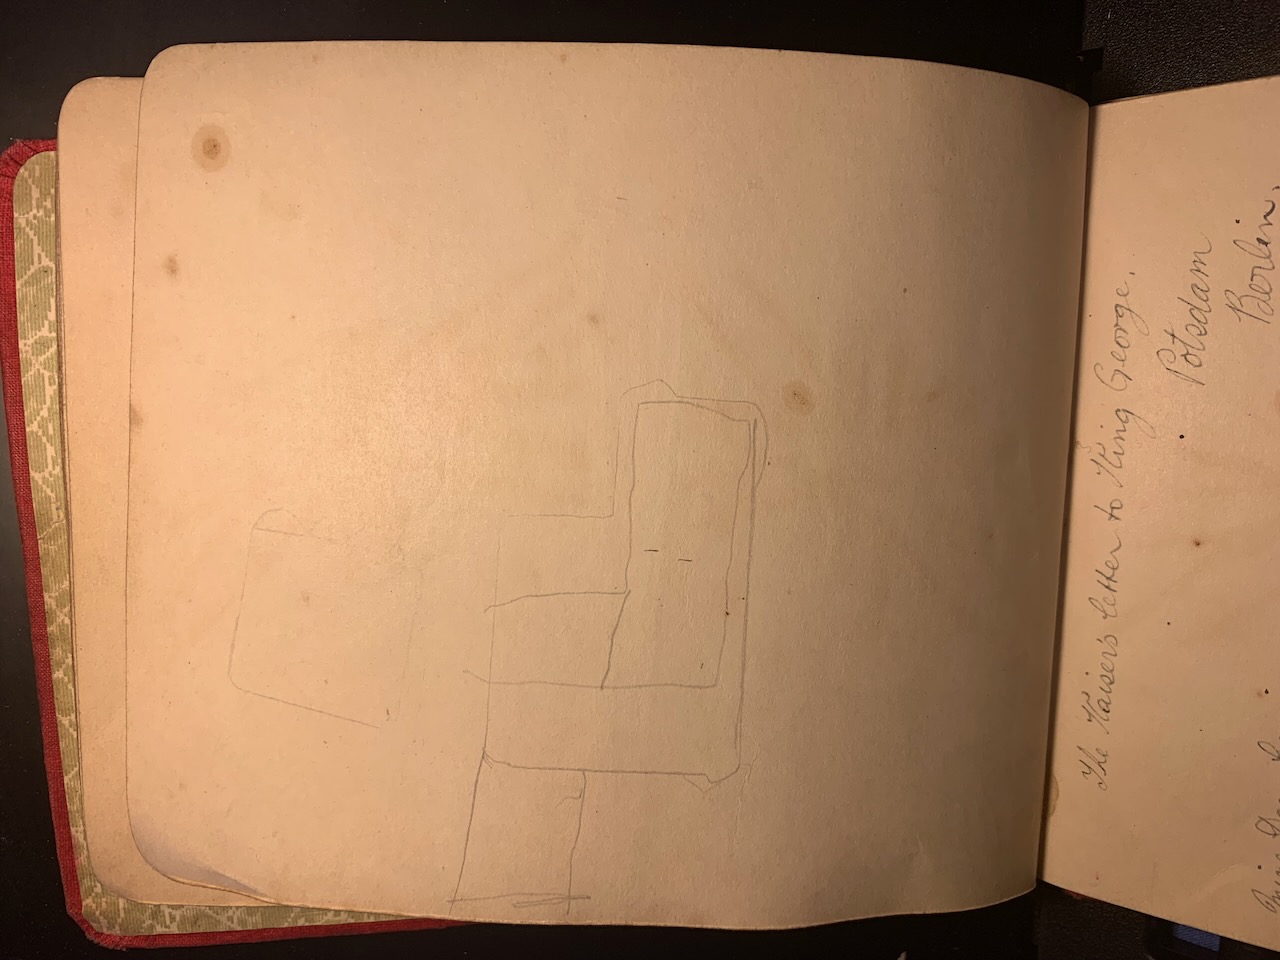 The Kaiser's letter to King George.
Potsdam
Berlin,